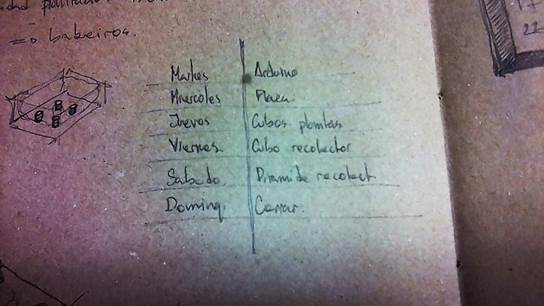 => babeiros.
Martes Arduino
Miercoles Plaza
Jueves Cubos plantas
Viernes Cubo recolector
Sabado Piramide recolect
Doming. Cerrar.
17
22